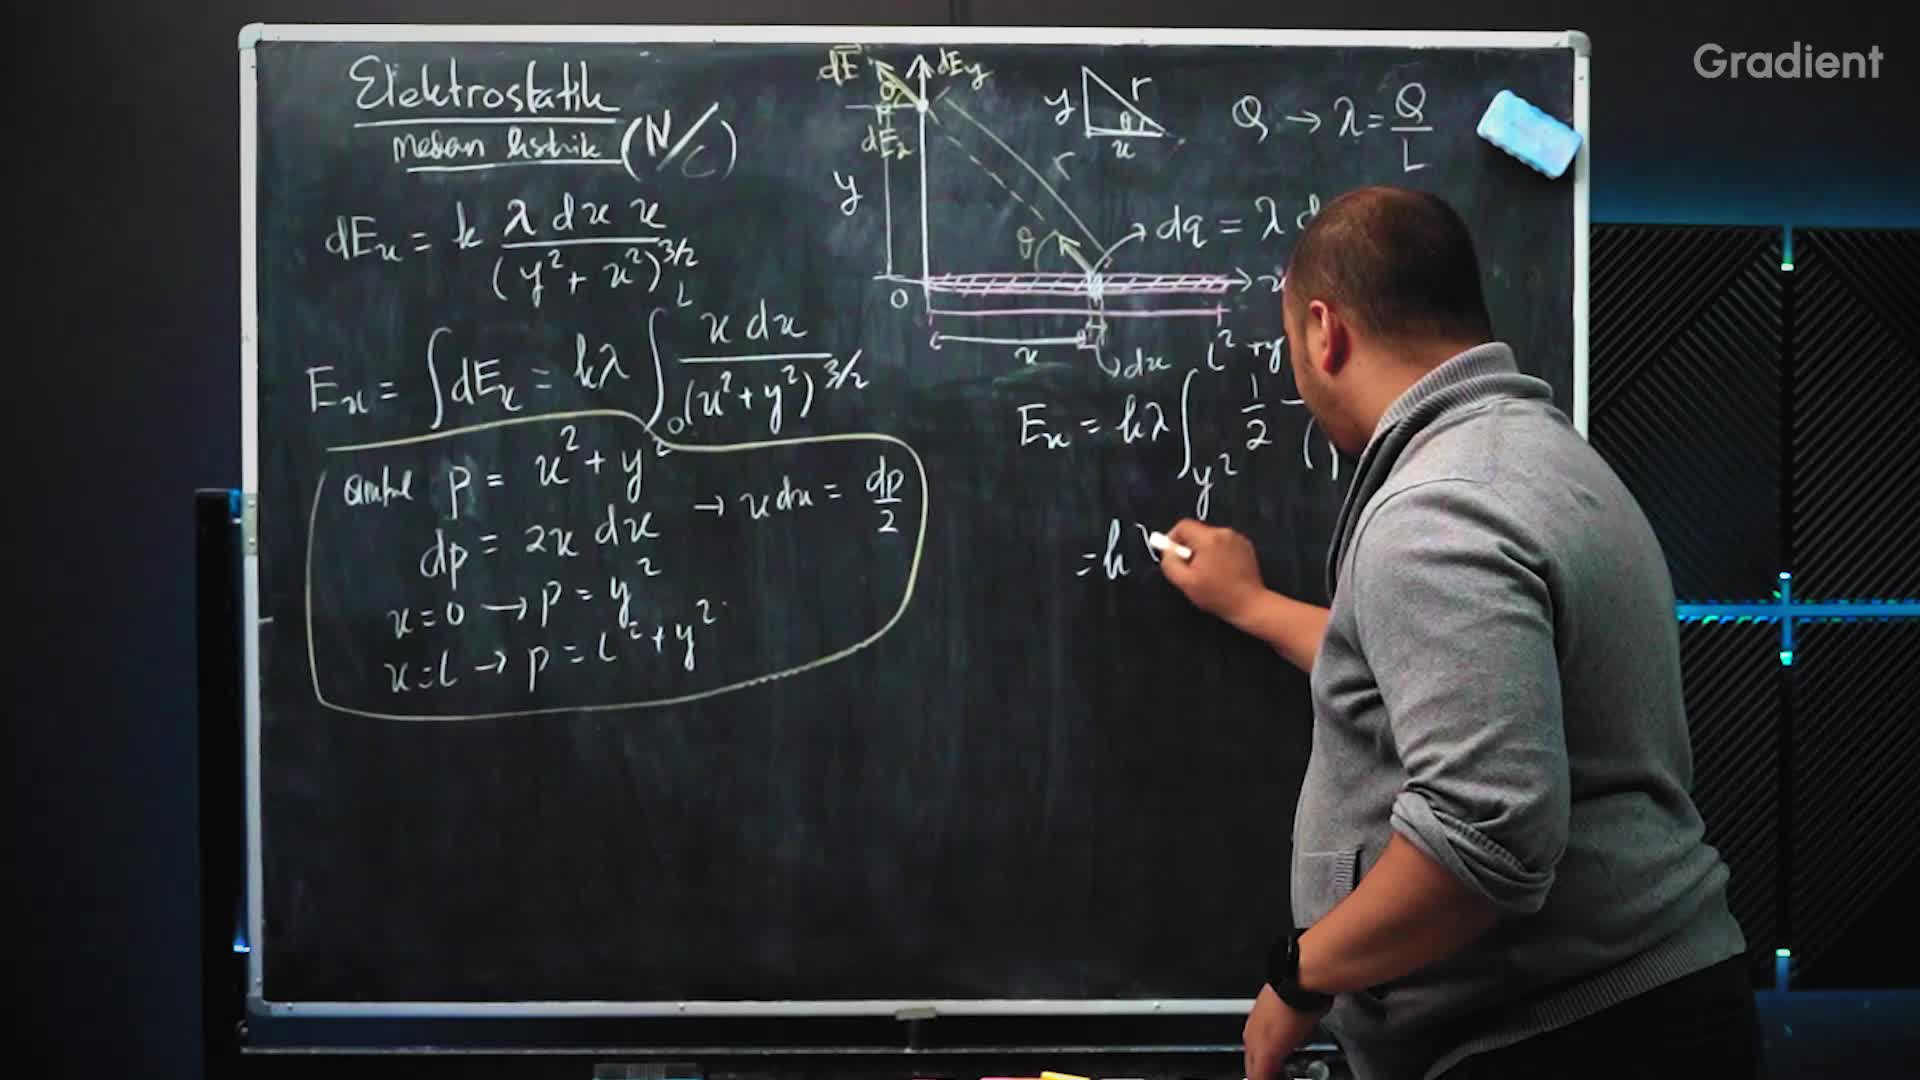 Gradient
Elektrostatik
Medan listrik (N/C)
dEx = k λ dx x / (y² + x²)^3/2
Ex = ∫ dEx = kλ ∫₀ᴸ x dx / (x² + y²)^3/2
p = x² + y²
dp = 2x dx → x dx = dp/2
x = 0 → p = y²
x = L → p = L² + y²
dE
dEy
dEx
y
r
θ
0
x
dx
y
r
θ
x
Q → λ = Q/L
dq = λ
L² + y
Ex = kλ ∫ y² 1/2
= k λ